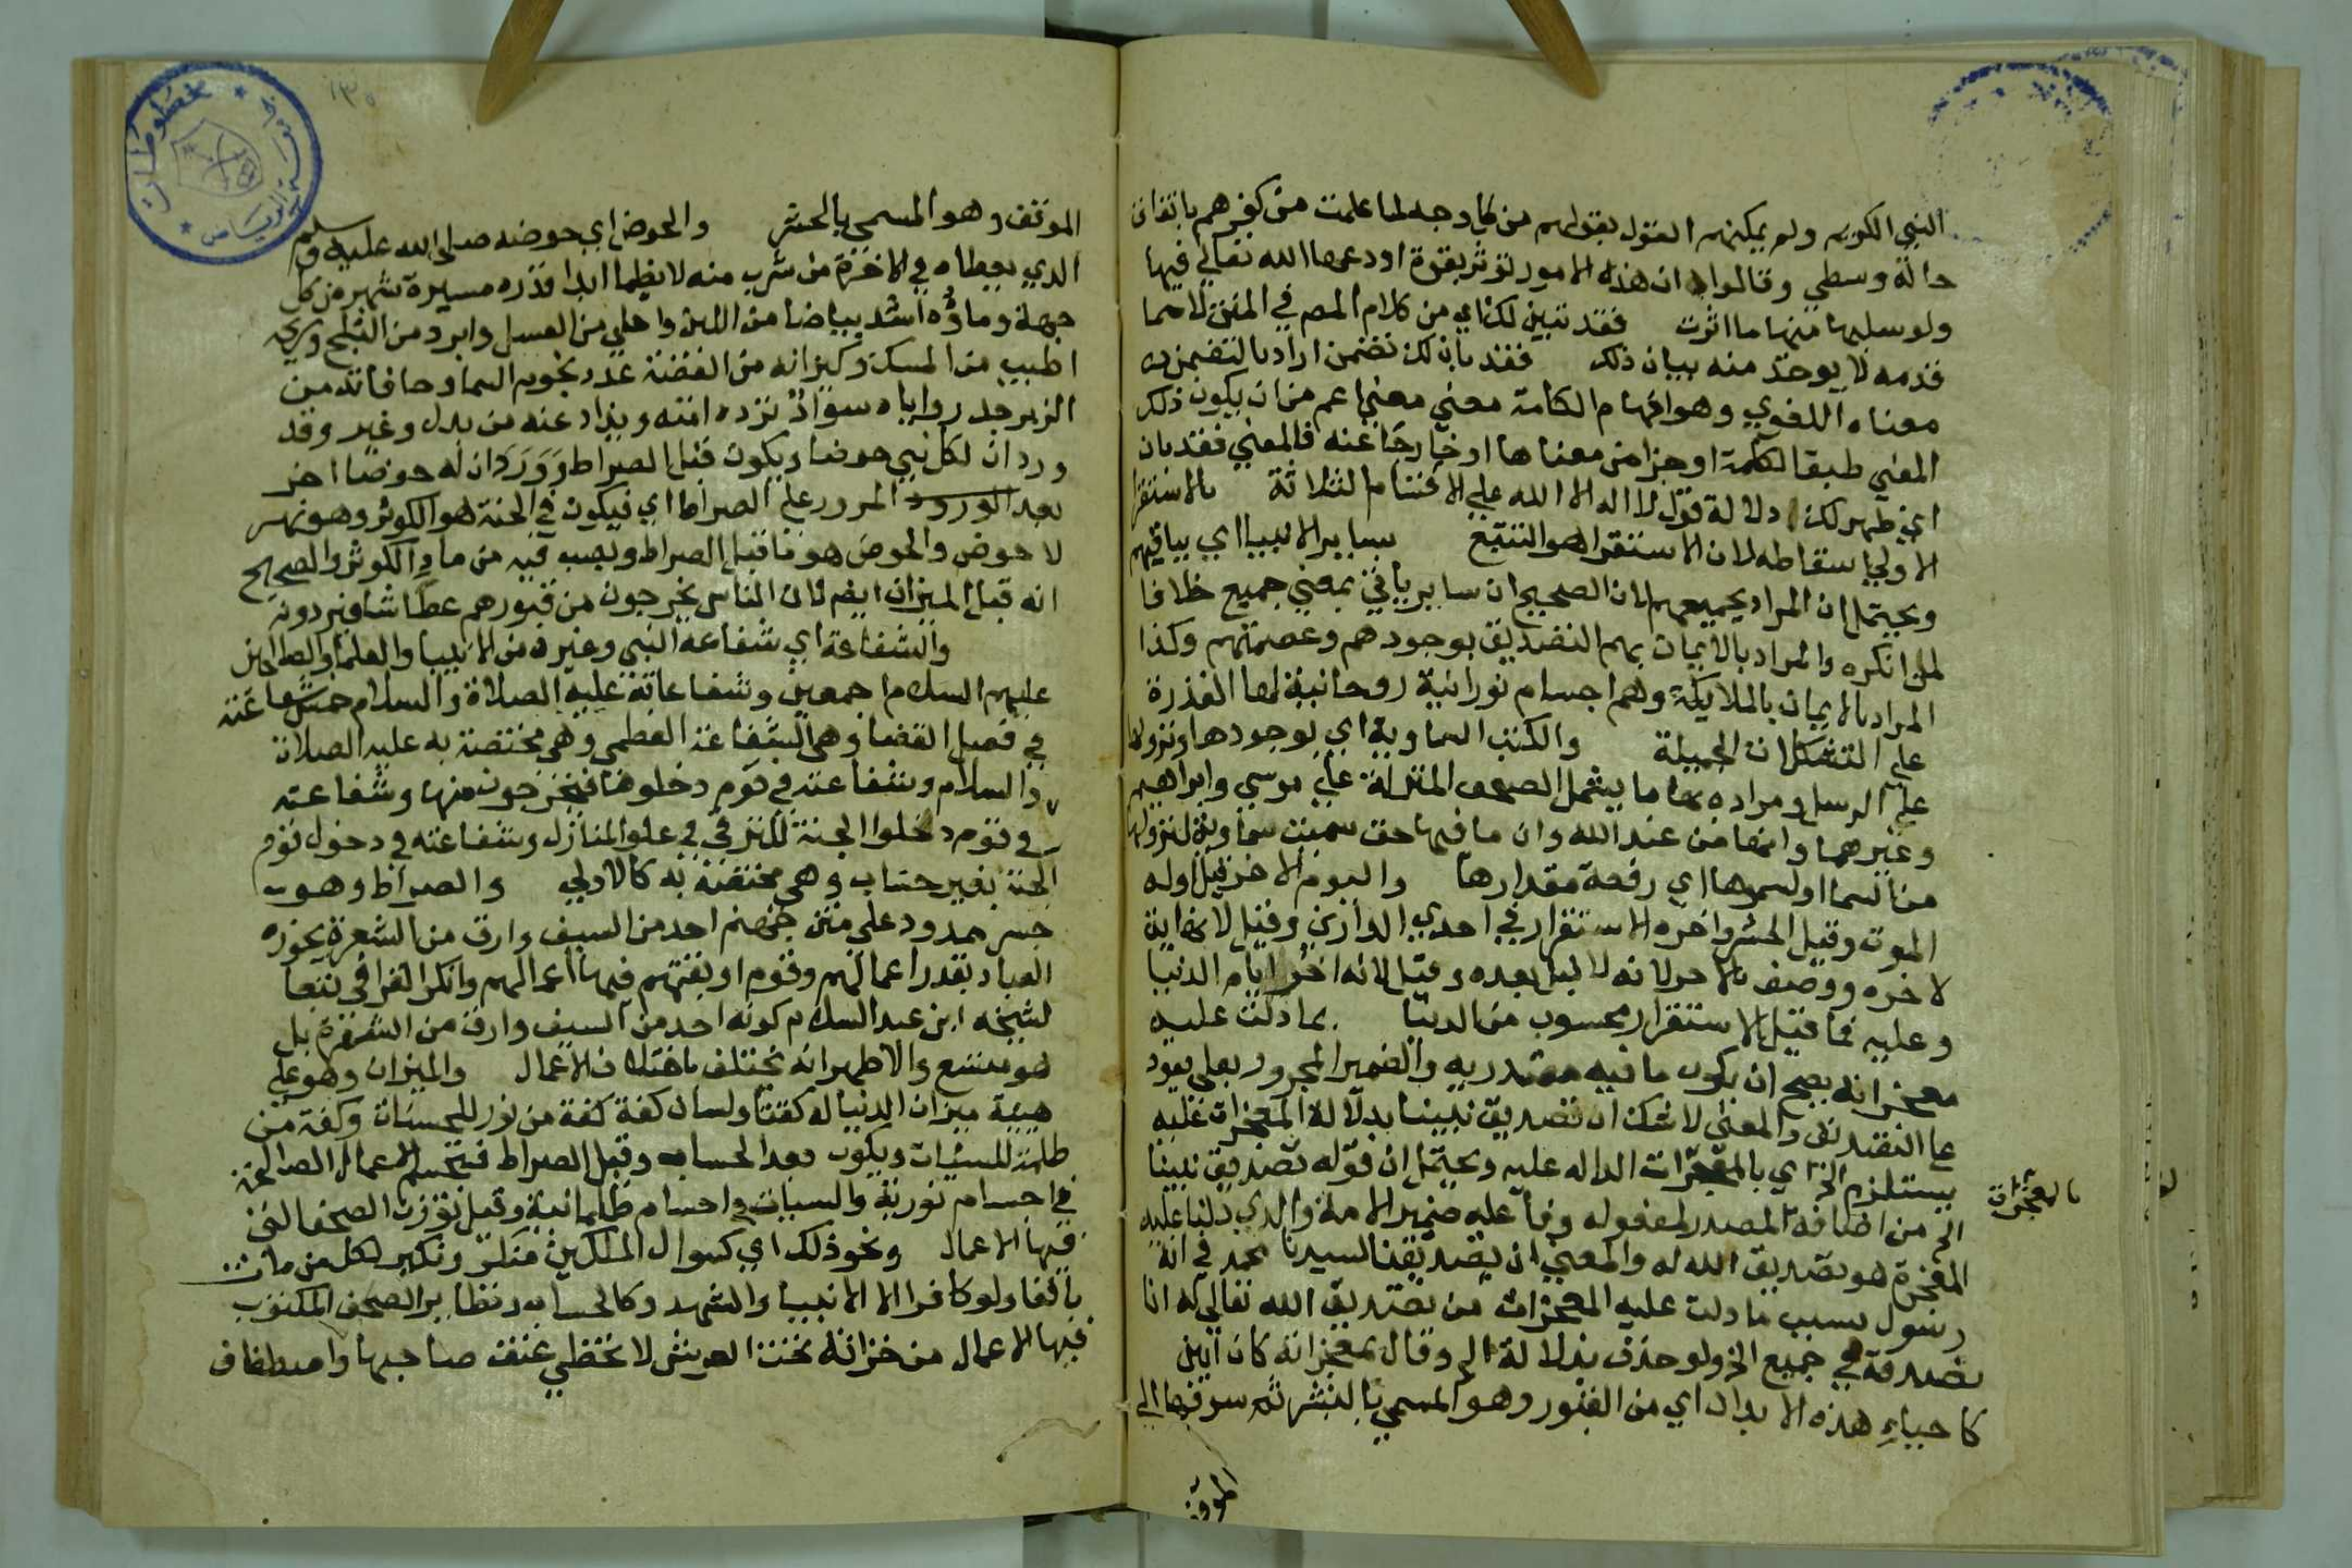 النبي الكريم ولم يمكنهم القول بقولهم من كل وجه لما علمت من كفرهم باتفاق
حالة وسطي وقالوا ان هذه الامور تؤثر بقوة اودعها الله تعالي فيها
ولو سلبها منها ما اثرت فقد تبين لك اي من كلام المصم في المتن لا مما
قدمه لا يوخذ منه بيان ذلك فقد بان لك تضمن اراد بالتضمن
معناه اللغوي وهو افهام الكلمة معني معني اعم من ان يكون ذلك
المعني طبقا لكلمة او جزا من معناها او خارجا عنه فالمعني فقد بان
اي ظهر لك دلالة قول لا اله الا الله علي الاقسام الثلاثة بالاستقرا
الاولي اسقاطه لان الاستقرا هو التتبع بساير الانبيا اي بباقيهم
ويحتمل ان المراد بجميعهم لان الصحيح ان ساير ياتي بمعني جميع خلافا
لمن انكره والمراد بالايمان بهم التصديق بوجودهم وعصمتهم وكذا
المراد بالايمان بالملايكة وهم اجسام نورانية روحانية لها القدرة
علي التشكلات الجميلة والكتب السماوية اي بوجودها ونزولها
علي الرسل ومراده بها ما يشمل الصحف المنزلة علي موسي وابراهيم
وغيرهما وانها من عند الله وان ما فيها حق سميت سماوية لنزولها
من السما او لسموها اي رفعة مقدارها واليوم الاخر قيل اوله
الموت وقيل الحشر واخره الاستقرار في احدي الدارين وقيل لا نهاية
لاخره ووصف بالاخر لانه لا ليل بعده وقيل لانه اخر ايام الدنيا
وعليه فما قبل الاستقرار محسوب من الدنيا بما دلت عليه
معجزاته يصح ان يكون ما فيه مصدريه والضمير المجرور بعلي يعود
علي التصديق والمعني لا شك ان تصديق نبينا بدلالة المعجزات عليه
يستلزم الخ اي بالمعجزات الداله عليه ويحتمل ان قوله تصديق نبينا
بالمعجزات
الخ من اضافة المصدر لمفعوله وفاعله ضمير الامة والذي دلنا عليه
المعجزة هو تصديق الله له والمعني ان تصديقنا لسيدنا محمد في انه
رسول بسبب ما دلت عليه المعجزات من تصديق الله تعالي له انا
نصدقه في جميع الخ ولو حذف بدلالة الخ وقال بمعجزاته كان ابين
كاحياء هذه الابدان اي من القبور وهو المسمي بالنشر ثم سوقها الي
الموقف
الموقف وهو المسمي بالحشر والحوض اي حوضه صلي الله عليه وسلم
الذي يعطاه في الاخرة من شرب منه لا يظما ابدا قدره مسيرة شهر من كل
جهة وماؤه اشد بياضا من اللبن واحلي من العسل وابرد من الثلج وريحه
اطيب من المسك وكيزانه من الفضة عدد نجوم السما وحافاته من
الزبرجد رواياه سواء ترده امته ويذاد عنه من بدل وغير وقد
ورد ان لكل نبي حوضا ويكون قبل الصراط وورد ان له حوضا اخر
بعد الورود المرور علي الصراط اي فيكون في الجنة هو الكوثر وهو نهر
لا حوض والحوض هو ما قبل الصراط ويصب فيه من ماء الكوثر والصحيح
انه قبل الميزان ايضا لان الناس يخرجون من قبورهم عطاشا فيردونه
والشفاعة اي شفاعة النبي وغيره من الانبيا والعلما والصالحين
عليهم السلام اجمعين وشفاعاته عليه الصلاة والسلام خمس شفاعته
في فصل القضا وهي الشفاعة العظمي وهي مختصة به عليه الصلاة
والسلام وشفاعته في قوم دخلوها فيخرجون منها وشفاعته
في قوم دخلوا الجنة للترقي في علو المنازل وشفاعته في دخول قوم
الجنة بغير حساب وهي مختصة به كالاولي والصراط وهو
جسر ممدود علي متن جهنم احد من السيف وارق من الشعرة يجوزه
العباد بقدر اعمالهم وقوم اوبقتهم فيها اعمالهم وانكر القرافي تبعا
لشيخه ابن عبد السلام كونه احد من السيف وارق من الشعرة بل
هو متسع والاظهر انه يختلف باختلاف الاعمال والميزان وهو علي
هيية ميزان الدنيا له كفتا ولسان كفة كفة من نور للحسنات وكفة من
ظلمة للسيئات ويكون بعد الحساب وقبل الصراط فتجسم الاعمال الصالحة
في اجسام نورية والسيات واجسام ظلمانية وقيل توزن الصحف التي
فيها الاعمال ونحو ذلك اي كسوال الملكين منكر ونكير لكل من مات
باقفا ولو كافرا الا الانبيا والشهد وكالحساب وتطاير الصحف المكتوب
فيها الاعمال من خزانة تحت العرش لا تخطي عنق صاحبها واصطفاف